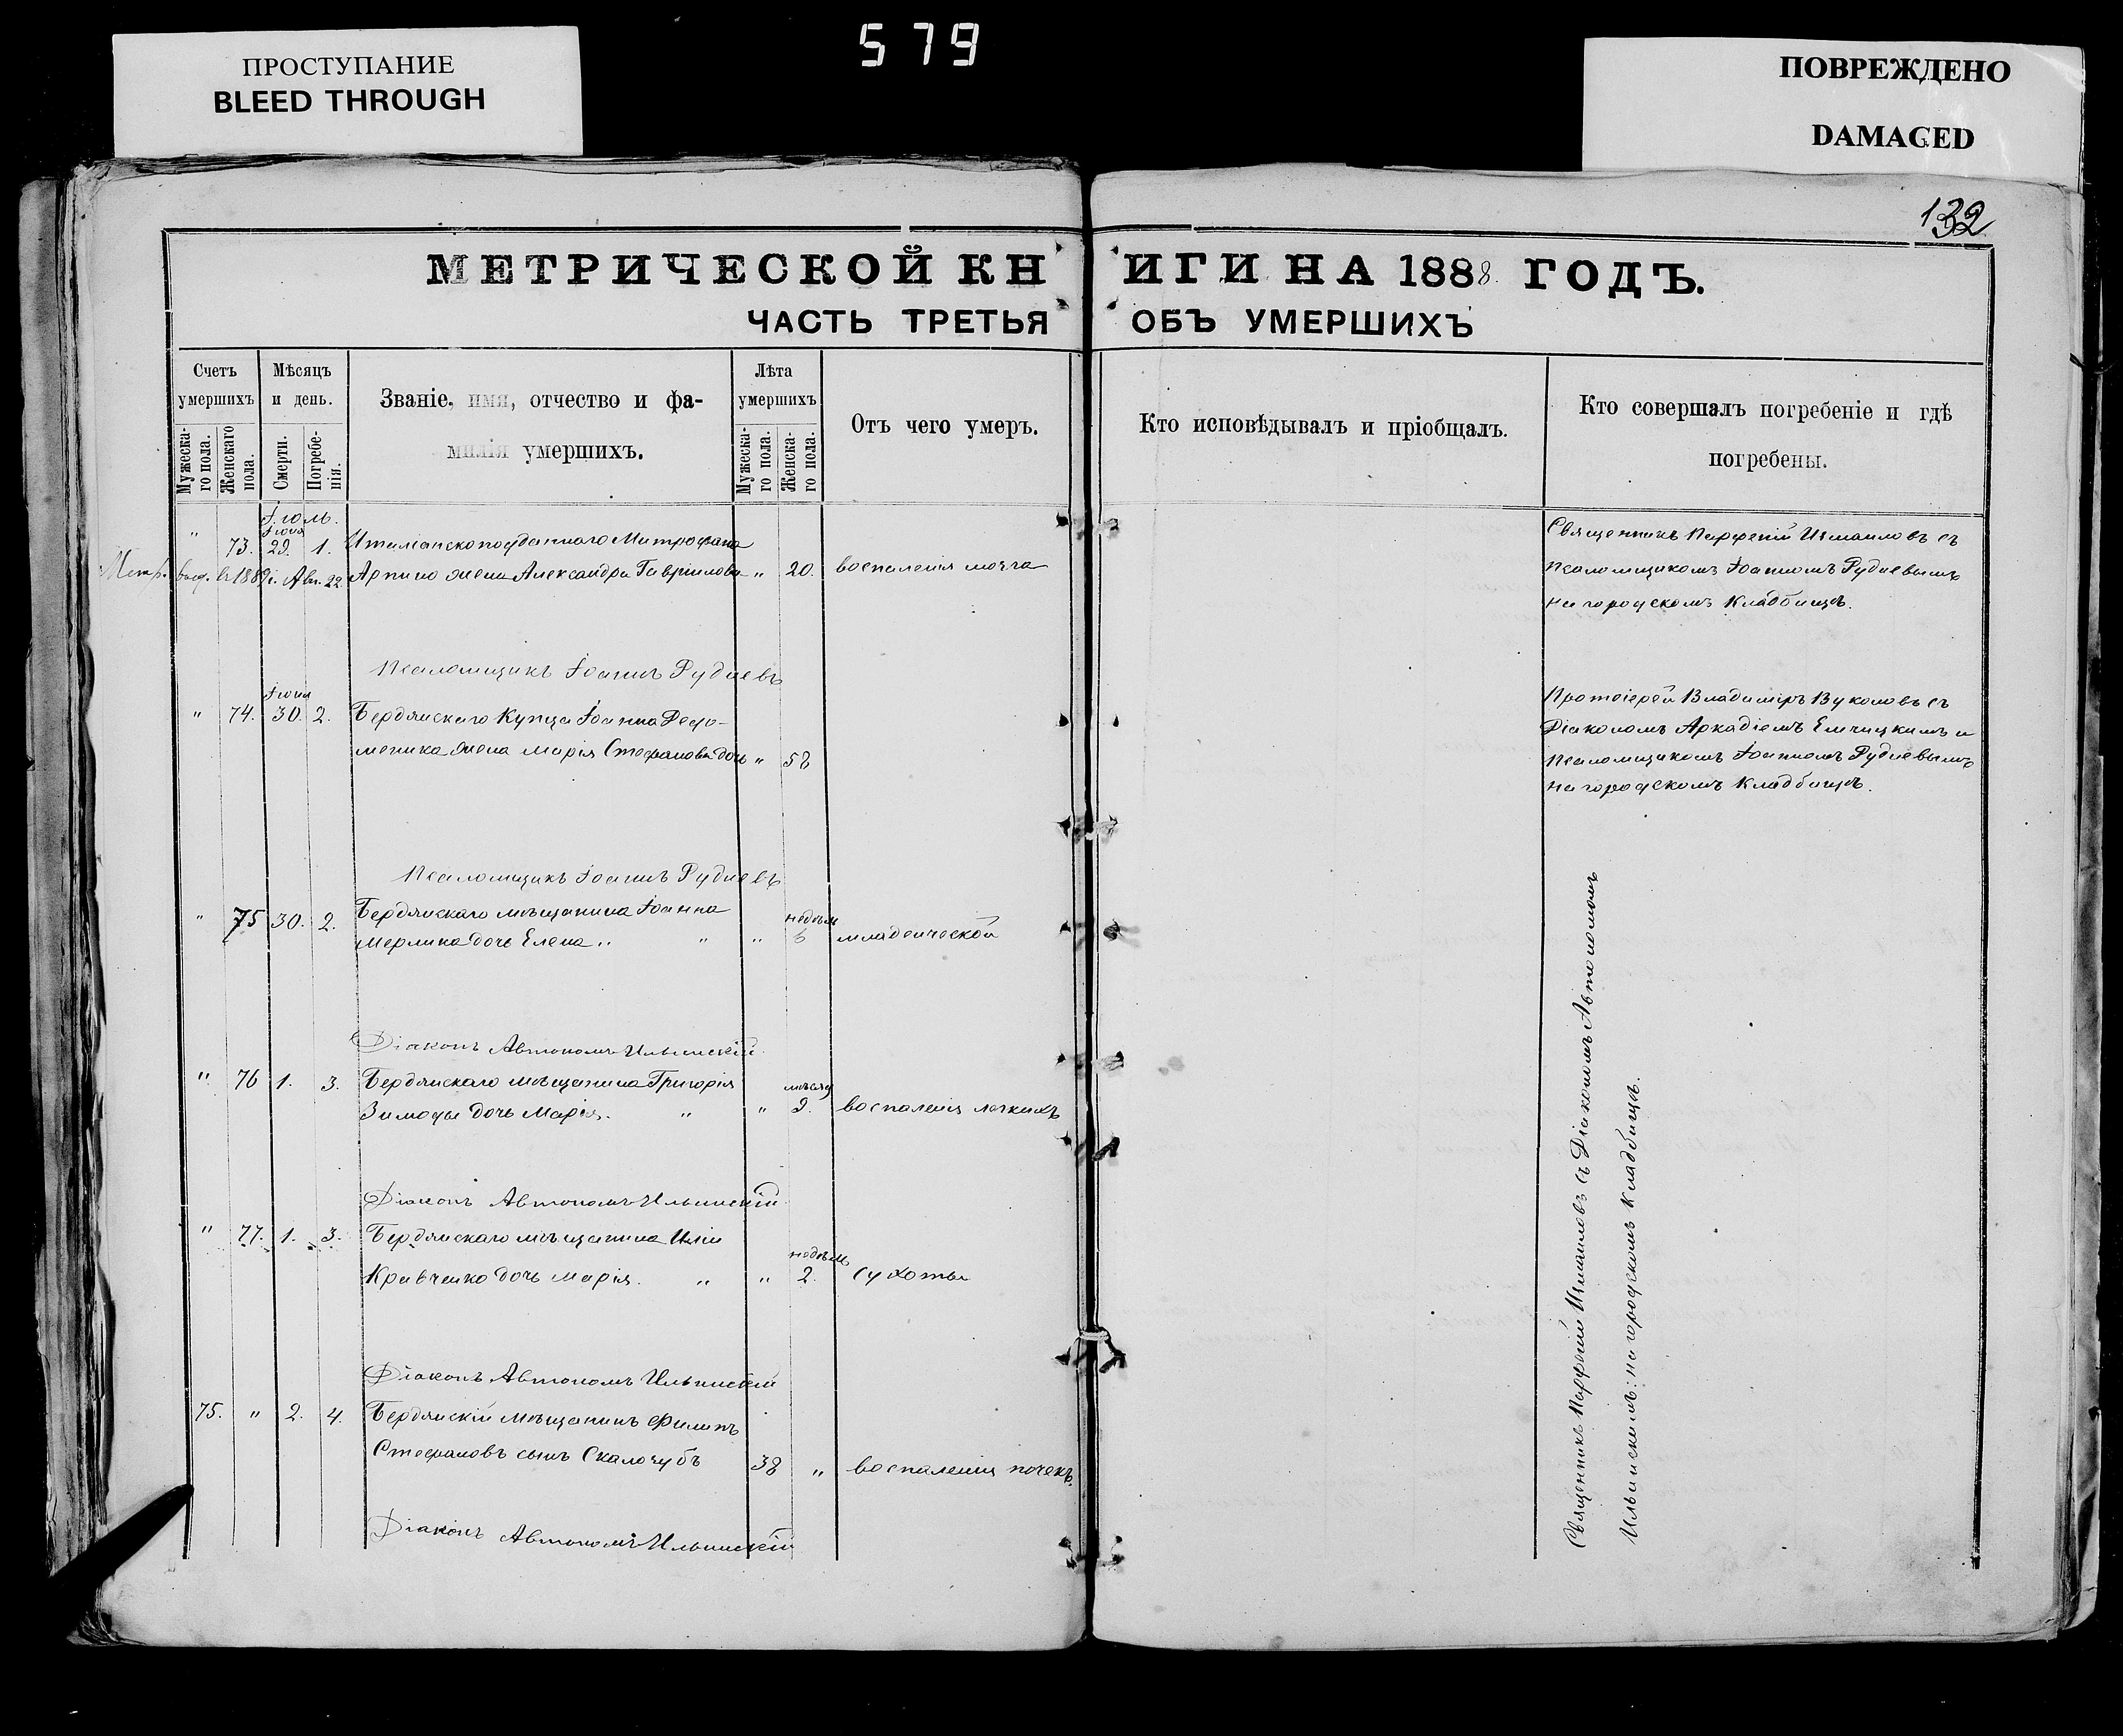 ПРОСТУПАНИЕ
BLEED THROUGH
579
ПОВРЕЖДЕНО
DAMAGED
132
МЕТРИЧЕСКОЙ КНИГИ НА 1888 ГОДЪ.
ЧАСТЬ ТРЕТЬЯ ОБЪ УМЕРШИХЪ
Счетъ умершихъ
Мужеска-го пола.
Женскаго пола.
Мѣсяцъ и день.
Смерти.
Погребе-нія.
Званіе, имя, отчество и фа-
милія умершихъ.
Лѣта умершихъ
Мужеска-го пола.
Женска-го пола.
Отъ чего умеръ.
Кто исповѣдывалъ и пріобщалъ.
Кто совершалъ погребеніе и гдѣ
погребены.
Іюль.
Іюня
" 73. 29. 1. Италіанскоподданнаго Митрофана
Метр. выд. въ 1889г. Авг. 22. Арпино жена Александра Гавріилова " 20. воспаленія мозга
Священникъ Парфеній Измаиловъ съ
псаломщикомъ Іоанномъ Рудневымъ
на городскомъ кладбищѣ.
Псаломщикъ Іоаннъ Рудневъ
Іюня
" 74. 30. 2. Бердянскаго Купца Іоанна
жена Марія Стефанова дочь " 58
Протоіерей Владиміръ Вуколовъ съ
Діакономъ Аркадіемъ и
псаломщикомъ Іоанномъ Рудневымъ
на городскомъ кладбищѣ.
Псаломщикъ Іоаннъ Рудневъ
" 75 30. 2. Бердянскаго мѣщанина Іоанна
недѣль
Мерлина дочь Елена " " " 6 младенческой
Діаконъ Автономъ Ильинскій
" 76 1. 3. Бердянскаго мѣщанина Григорія
мѣсяц
дочь Марія. " " 9. воспаленія легкихъ
Діаконъ Автономъ Ильинскій
" 77. 1. 3. Бердянскаго мѣщанина Иліи
недѣль
Кравченко дочь Марія. " " 2. сухоты
Діаконъ Автономъ Ильинскій
75. " 2. 4. Бердянскій мѣщанинъ Филипъ
Стефановъ сынъ Скалозубъ 38 " воспаленія почекъ.
Діаконъ Автономъ Ильинскій
Священникъ Парфеній Измаиловъ съ Діакономъ Автономомъ
Ильинскимъ: на городскомъ кладбищѣ.